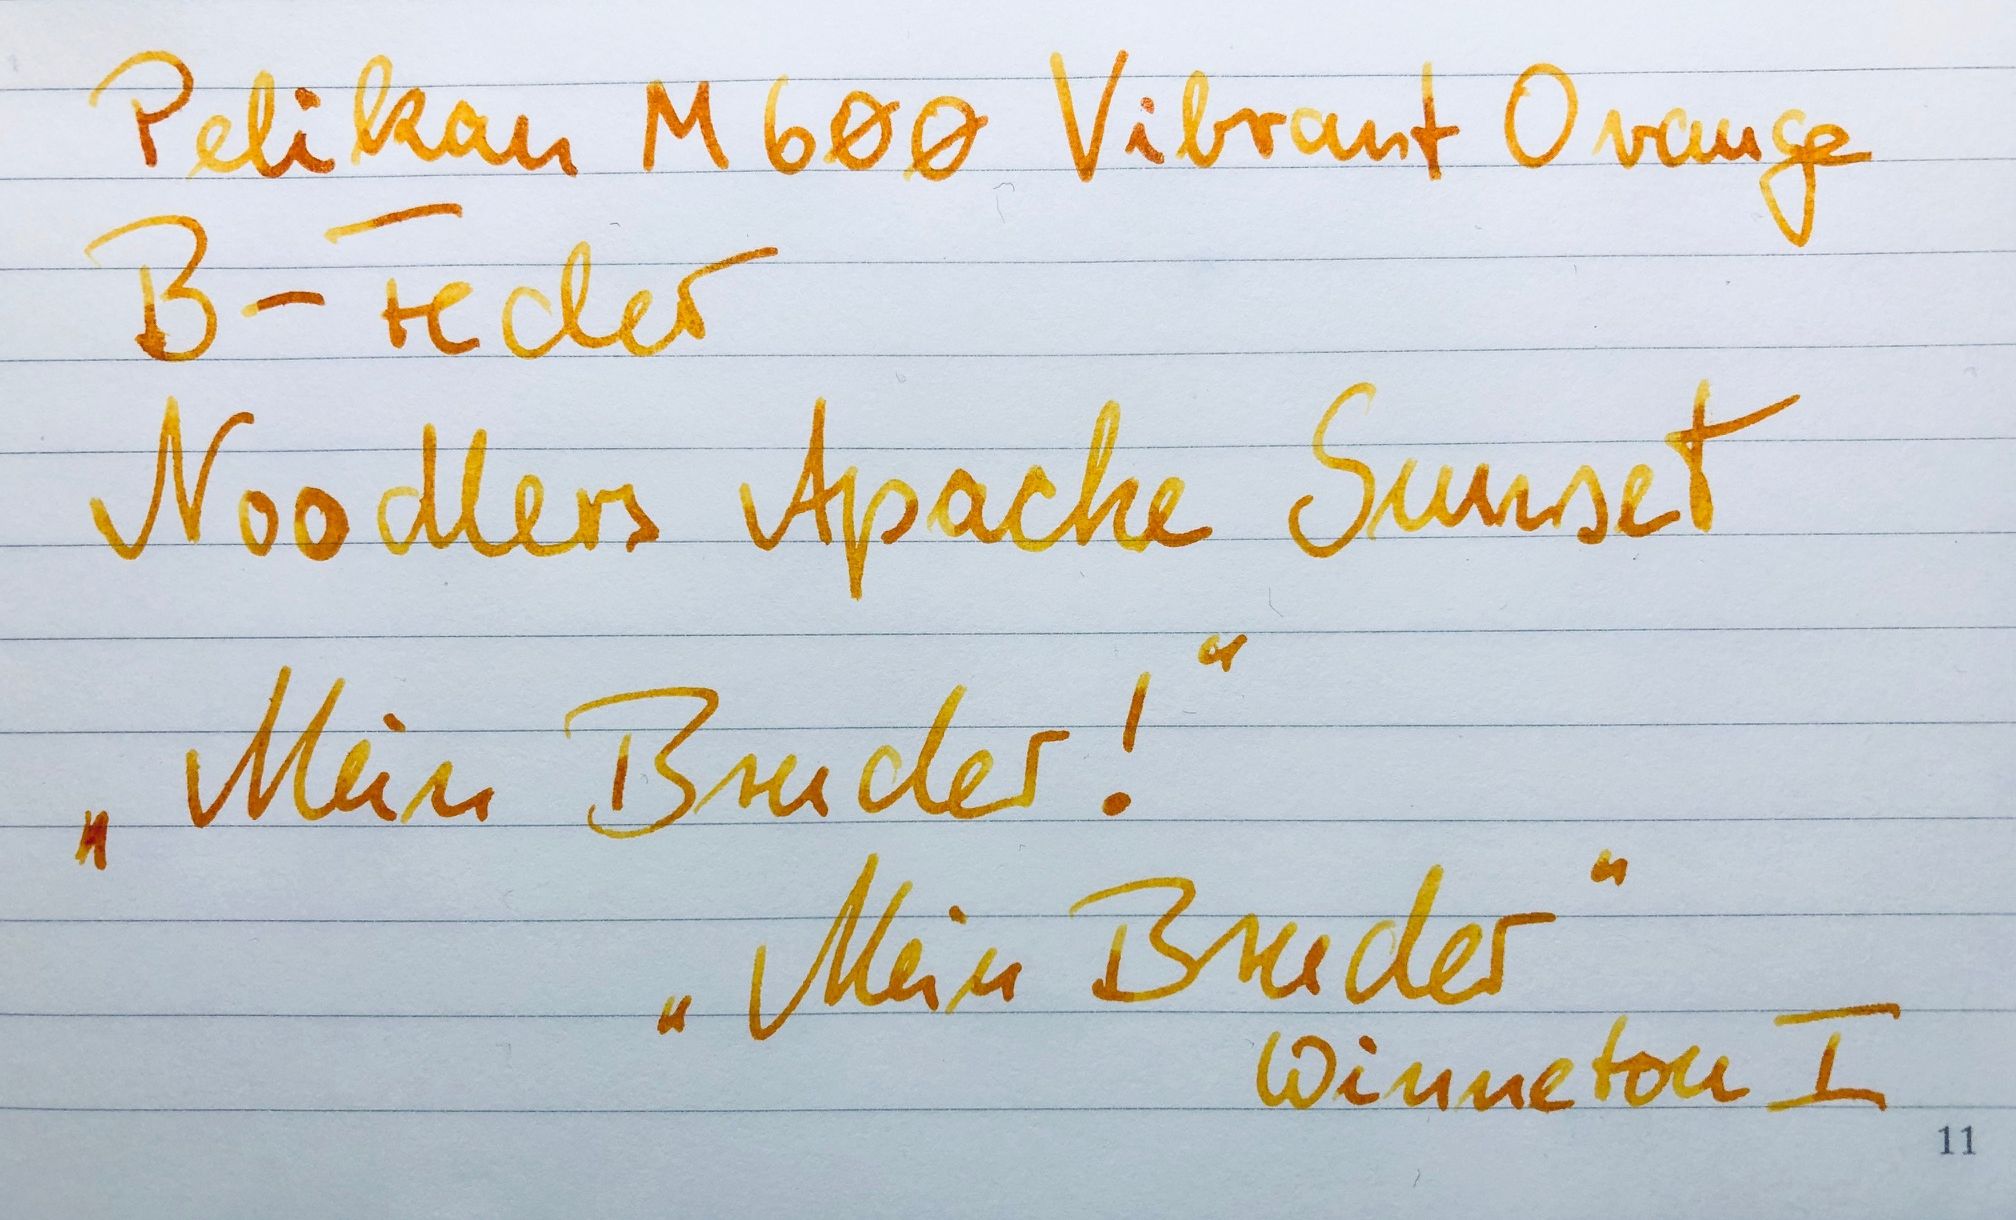 Pelikan M600 Vibrant Orange
B-Feder
Noodlers Apache Sunset
„Mein Bruder!“
„Mein Bruder“
Winnetou I
11